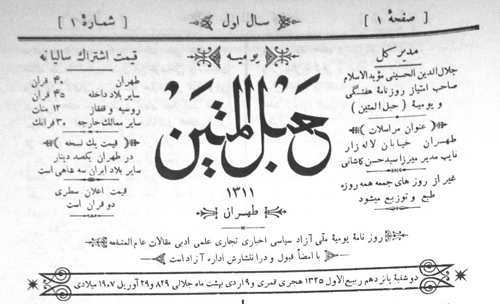 [ صفحهٔ ۱ ]
سال اول
[ شمارهٔ ۱ ]
مدیر کل
جلال‌الدین الحسینی مؤیدالاسلام
صاحب امتیاز روزنامهٔ هفتگی
و یومیهٔ ( حبل المتین )
( عنوان مراسلات )
طهران خیابان لاله زار
نایب مدیر میرزا سید حسن کاشانی
غیر از روز های جمعه همه روزه
طبع و توزیع میشود
یومیه
حبل المتین
۱۳۱۱
طهران
قیمت اشتراک سالیانه
طهران ۴۰ قران
سایر بلاد داخله ۴۵ قران
روسیه و قفقاز ۱۳ منات
سایر ممالک خارجه ۳۰ فرانک
( قیمت یک نسخه )
در طهران یکصد دینار
سایر بلاد ایران سه شاهی است
قیمت اعلان سطری
دو قران است
روزنامهٔ یومیهٔ ملی آزاد سیاسی اخباری تجاری علمی ادبی مقالات عام‌المنفعه
با امضأ قبول و در انتشارش اداره آزاد است
دوشنبهٔ پانزدهم ربیع‌الاول ۱۳۲۵ هجری قمری و ۹ اردی بهشت ماه جلالی ۸۲۹ و ۲۹ آوریل ۱۹۰۷ میلادی